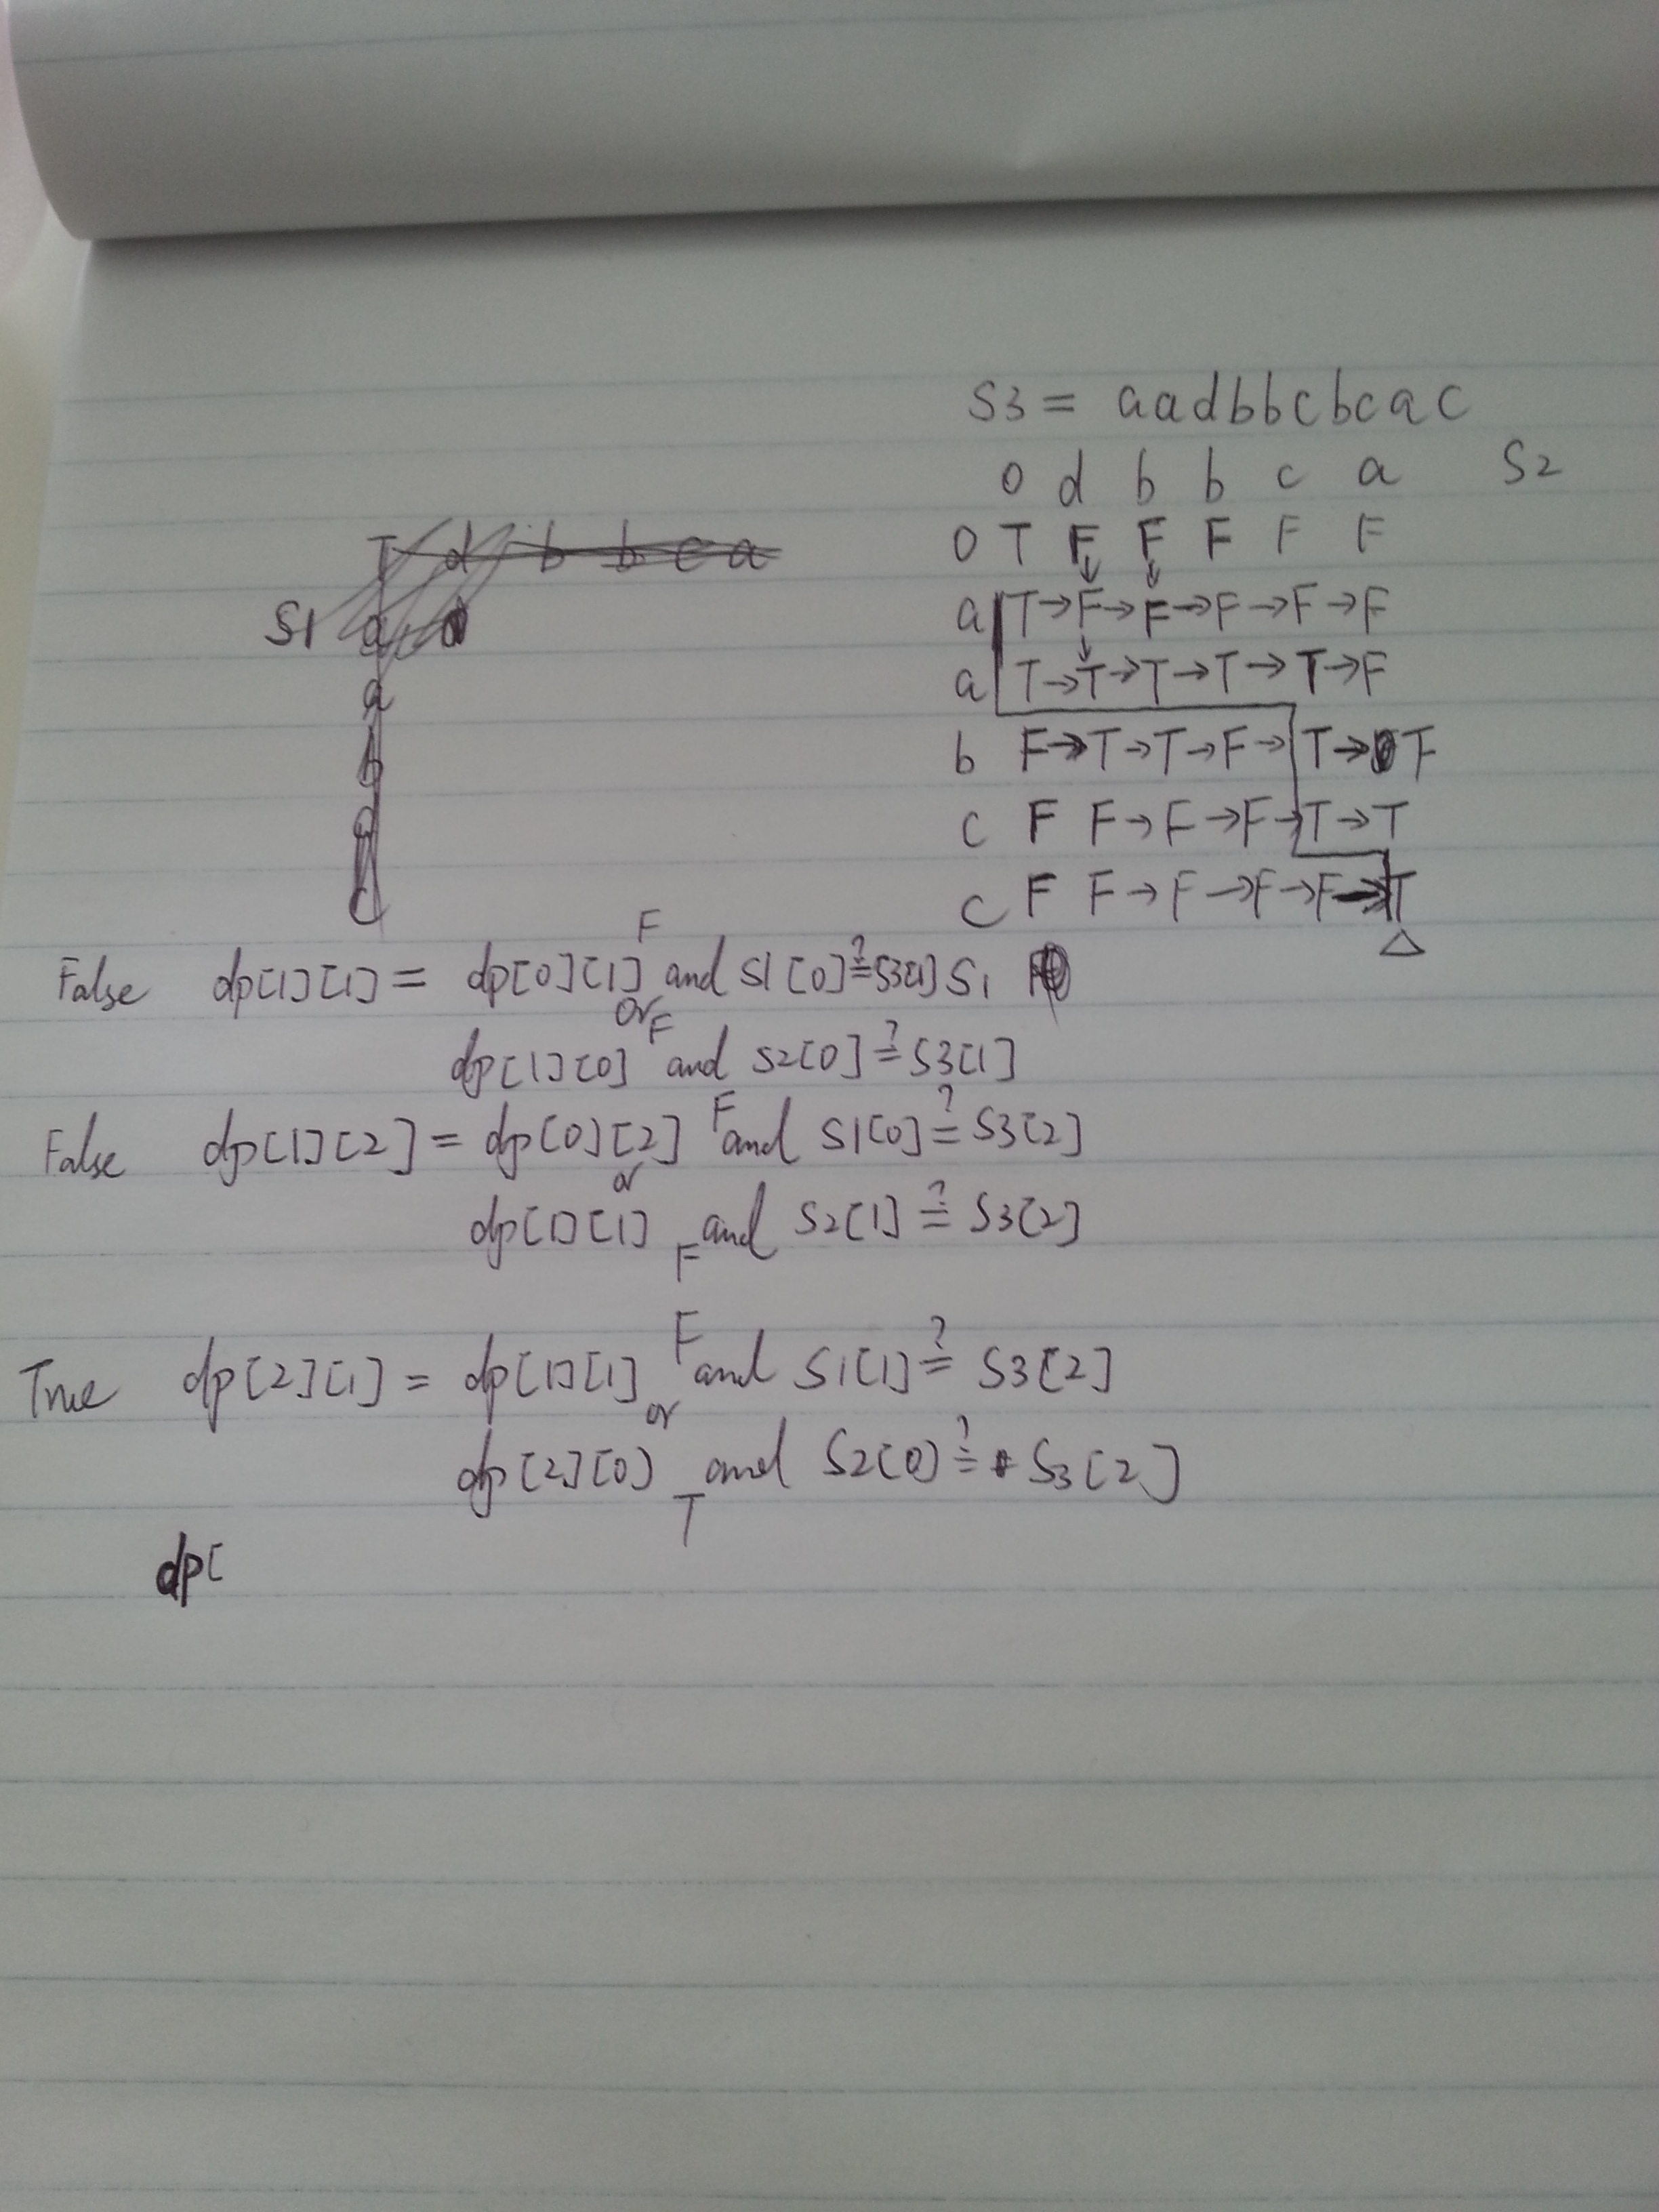 S3 = aadbbcbcac
0 d b b c a S2
0 T F F F F F
a T→F→F→F→F→F
a T→T→T→T→T→F
b F→T→T→F→T→F
c F F→F→F→T→T
c F F→F→F→F→T
△
T d b b c a
S1 a
a
b
c
c
False dp[1][1] = dp[0][1] F and S1[0]≟S3[1] S1
or
dp[1][0] F and S2[0]≟S3[1]
False dp[1][2] = dp[0][2] F and S1[0]≟S3[2]
or
dp[1][1] F and S2[1]≟S3[2]
True dp[2][1] = dp[1][1] F and S1[1]≟S3[2]
or
dp[2][0] T and S2[0]≟S3[2]
dp[